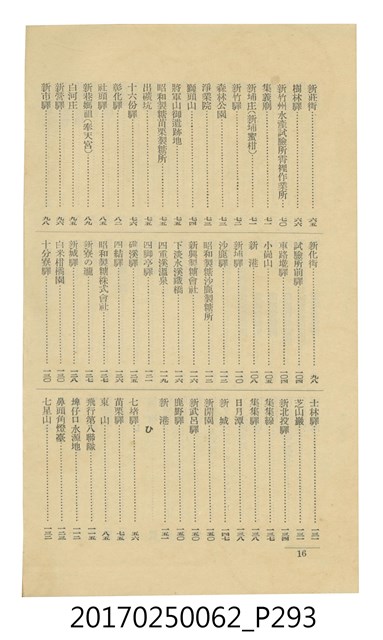 新莊街……六五
樹林驛……六六
新竹州水產試驗所青裡作業所……七〇
集義廟……七一
新埔庄(新埔蜜柑)……七一
新竹驛……七二
森林公園……七二
淨業院……七三
獅頭山……七四
將軍山御遺跡地……七五
昭和製糖苗栗製糖所……七五
出磺坑……七五
十六份驛……七六
彰化驛……八二
社頭驛……八九
新港媽祖(奉天宮)……八九
白河庄……九五
新營驛……九六
新市驛……九八
新化街……九八
試驗所前驛……一〇四
車路墘驛……一〇四
小崗山……一〇五
新港……一〇七
新埔驛……一二〇
沙鹿驛……一二二
昭和製糖沙鹿製糖所……一二三
新興製糖會社……一二六
下淡水溪鐵橋……一二六
四重溪溫泉……一二九
四腳亭驛……一三一
礁溪驛……一三六
四結驛……一三六
昭和製糖株式會社……一三七
新寮の瀧……一三七
新城驛……一二八
白米柑橘園……一三〇
十分寮驛……一三〇
士林驛……一三一
芝山巖……一三一
新北投驛……一三二
集集線……一三七
集集驛……一三八
日月潭……一三八
新城……一四七
新開園……一五〇
新武呂驛……一五〇
鹿野驛……一五〇
新港……一五一
ひ
七堵驛……五六
苗栗驛……七五
東山……八五
飛行第八聯隊……一一五
埤仔口水源地……一二三
鼻頭角燈臺……一三二
七星山……一三二
16
20170250062_P293